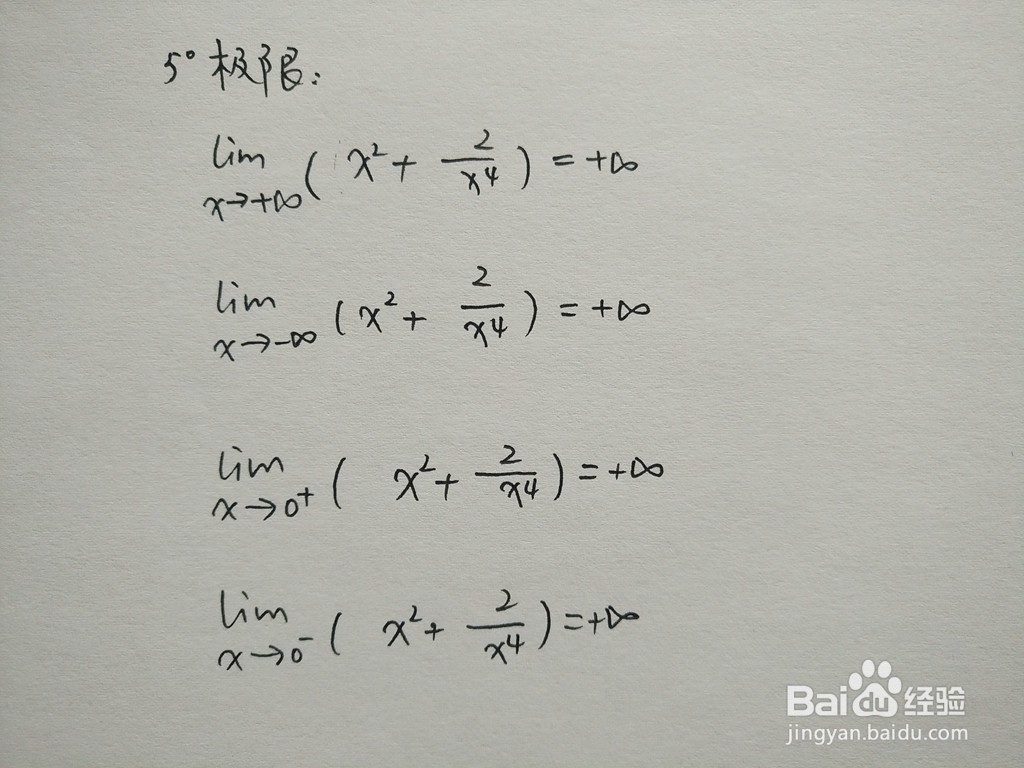 5° 极限:
lim x→+∞ ( x² + 2/x⁴ ) = +∞
lim x→-∞ ( x² + 2/x⁴ ) = +∞
lim x→0⁺ ( x² + 2/x⁴ ) = +∞
lim x→0⁻ ( x² + 2/x⁴ ) = +∞
Baidu经验
jingyan.baidu.com